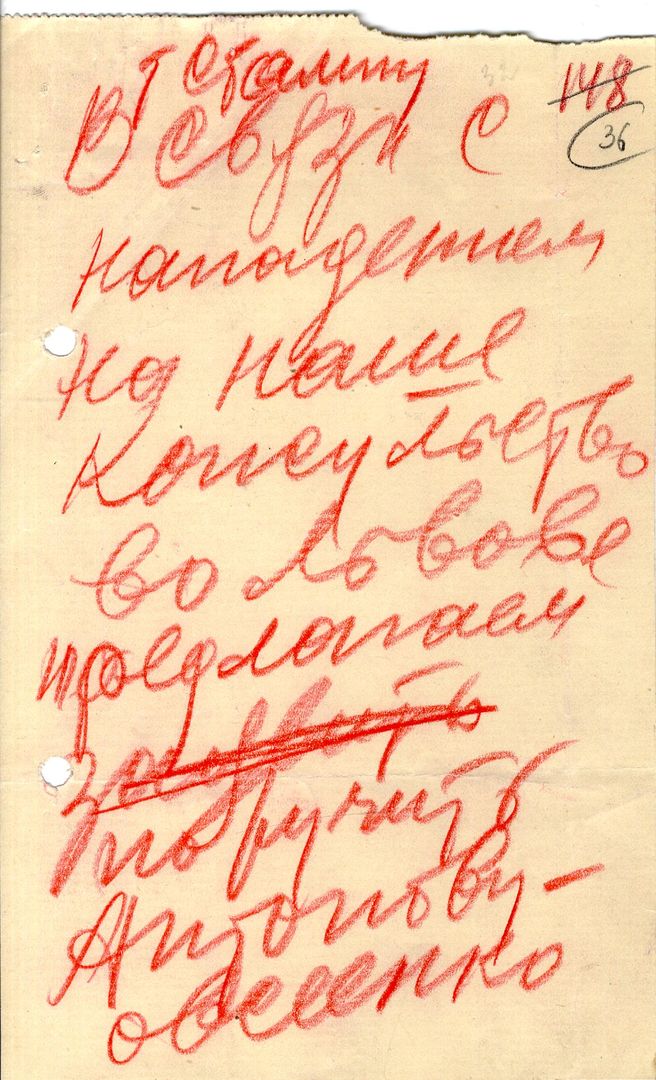 т Сталину
32
148
36
В связи с
нападением
на наше
консульство
во Львове
предлагаем
заявить
поручить
Антонову-
овсеенко